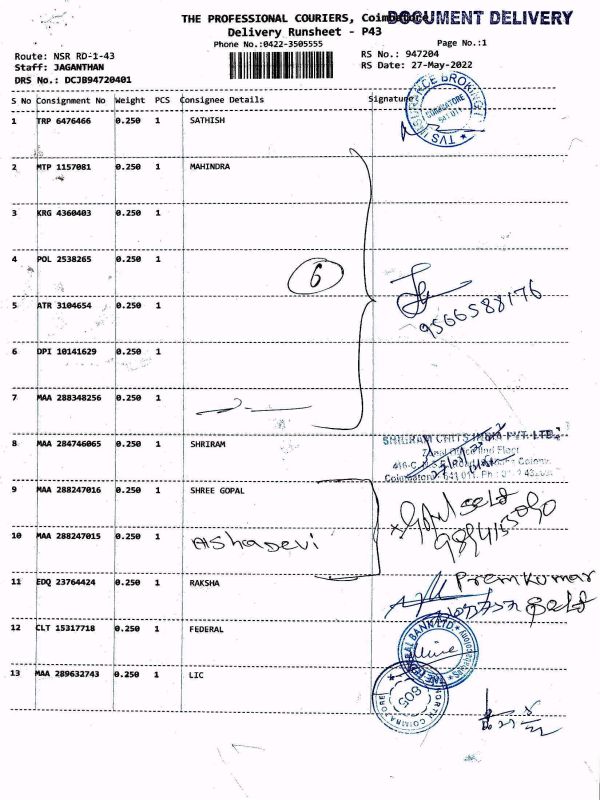 THE PROFESSIONAL COURIERS, Coimbatore
DOCUMENT DELIVERY
Delivery Runsheet - P43
Phone No.:0422-3505555
Page No.:1
Route: NSR RD-1-43
RS No.: 947204
Staff: JAGANTHAN
RS Date: 27-May-2022
DRS No.: DCJB94720401
S No Consignment No Weight PCS Consignee Details Signature
1 TRP 6476466 0.250 1 SATHISH
TVS INSURANCE BROKING
COIMBATORE
641 011
2 MTP 1157081 0.250 1 MAHINDRA
3 KRG 4360403 0.250 1
4 POL 2538265 0.250 1
6
9566588176
5 ATR 3104654 0.250 1
6 DPI 10141629 0.250 1
7 MAA 288348256 0.250 1
8 MAA 284746065 0.250 1 SHRIRAM
SHRIRAM CHITS INDIA PVT. LTD.
9 MAA 288247016 0.250 1 SHREE GOPAL
10 MAA 288247015 0.250 1 AIShadevi
11 EDQ 23764424 0.250 1 RAKSHA
Premkumar
12 CLT 15317718 0.250 1 FEDERAL
13 MAA 289632743 0.250 1 LIC
805
NORTH COIMBATORE